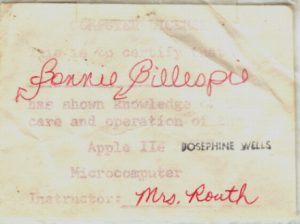 COMPUTER LICENSE
This is to certify that
Bonnie Gillespie
has shown knowledge of
care and operation of
Apple IIe JOSEPHINE WELLS
Microcomputer
Instructor: Mrs. Routh